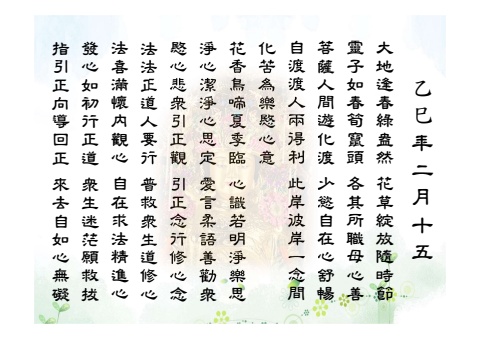 乙巳年二月十五
大地逢春綠盎然　花草綻放隨時節
靈子如春筍竄頭　各其所職毋心善
菩薩人間遊化渡　少慾自在心舒暢
自渡渡人兩得利　此岸彼岸一念間
化苦為樂愍心意
花香鳥啼夏季臨　心識若明淨樂思
淨心潔淨心思定　愛言柔語善勸衆
愍心悲衆引正觀　引正念行修心念
法法正道人要行　普救衆生道修心
法喜滿懷內觀心　自在求法精進心
發心如初行正道　衆生迷茫願救拔
指引正向導回正　來去自如心無礙